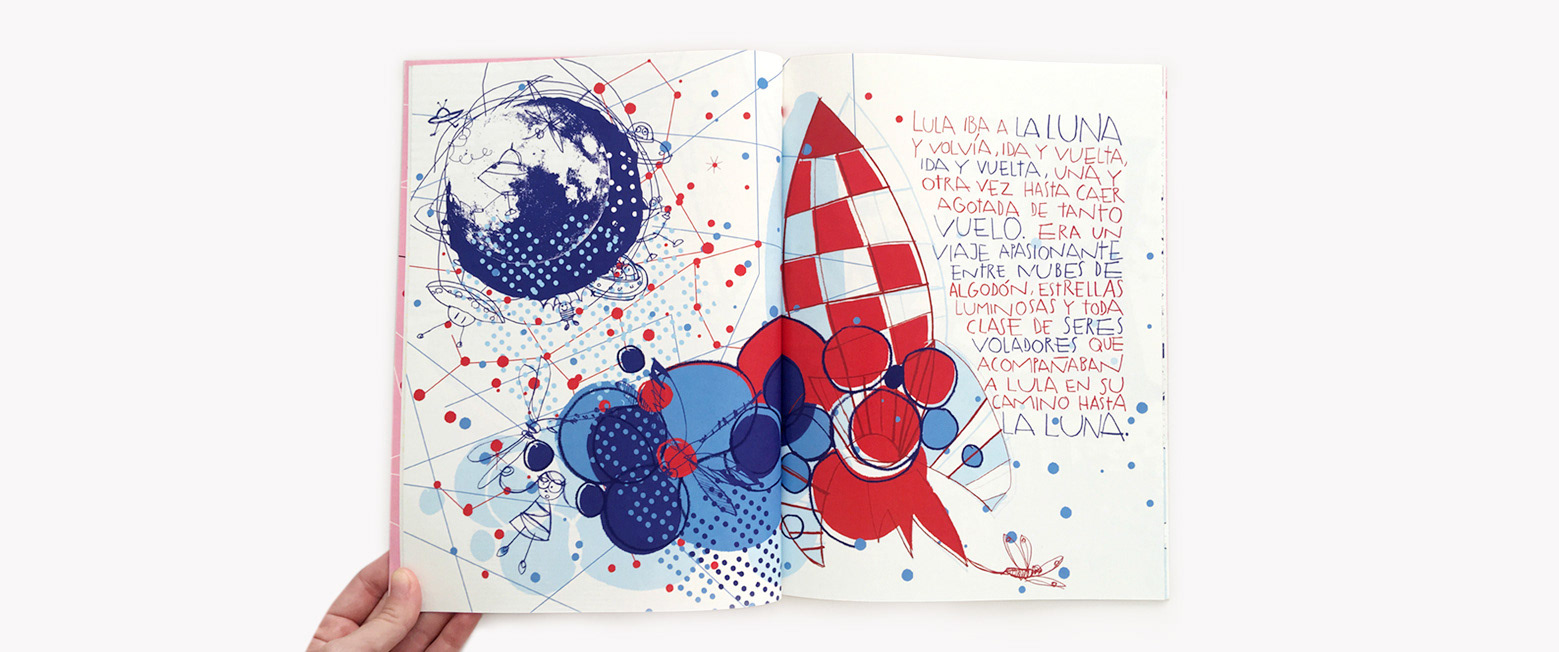 LULA IBA A LA LUNA
Y VOLVÍA, IDA Y VUELTA,
IDA Y VUELTA, UNA Y
OTRA VEZ HASTA CAER
AGOTADA DE TANTO
VUELO. ERA UN
VIAJE APASIONANTE
ENTRE NUBES DE
ALGODÓN, ESTRELLAS
LUMINOSAS Y TODA
CLASE DE SERES
VOLADORES QUE
ACOMPAÑABAN
A LULA EN SU
CAMINO HASTA
LA LUNA.